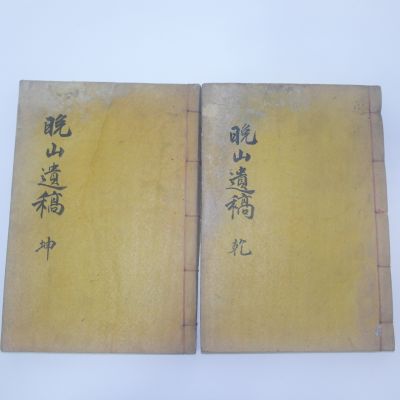 晩山遺稿
乾
晩山遺稿
坤